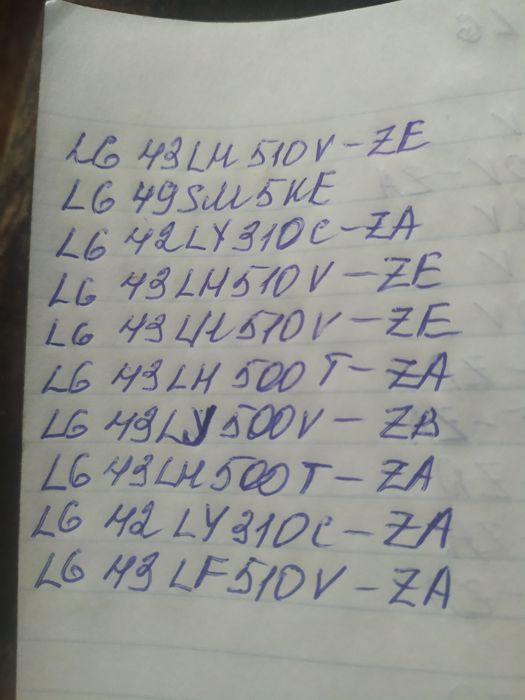 LG 43LH510V-ZE
LG 49SM5KE
LG 42LY310C-ZA
LG 43LH510V-ZE
LG 43LH510V-ZE
LG 43LH500T-ZA
LG 43LJ500V-ZB
LG 43LH500T-ZA
LG 42LY310C-ZA
LG 43LF510V-ZA
LG